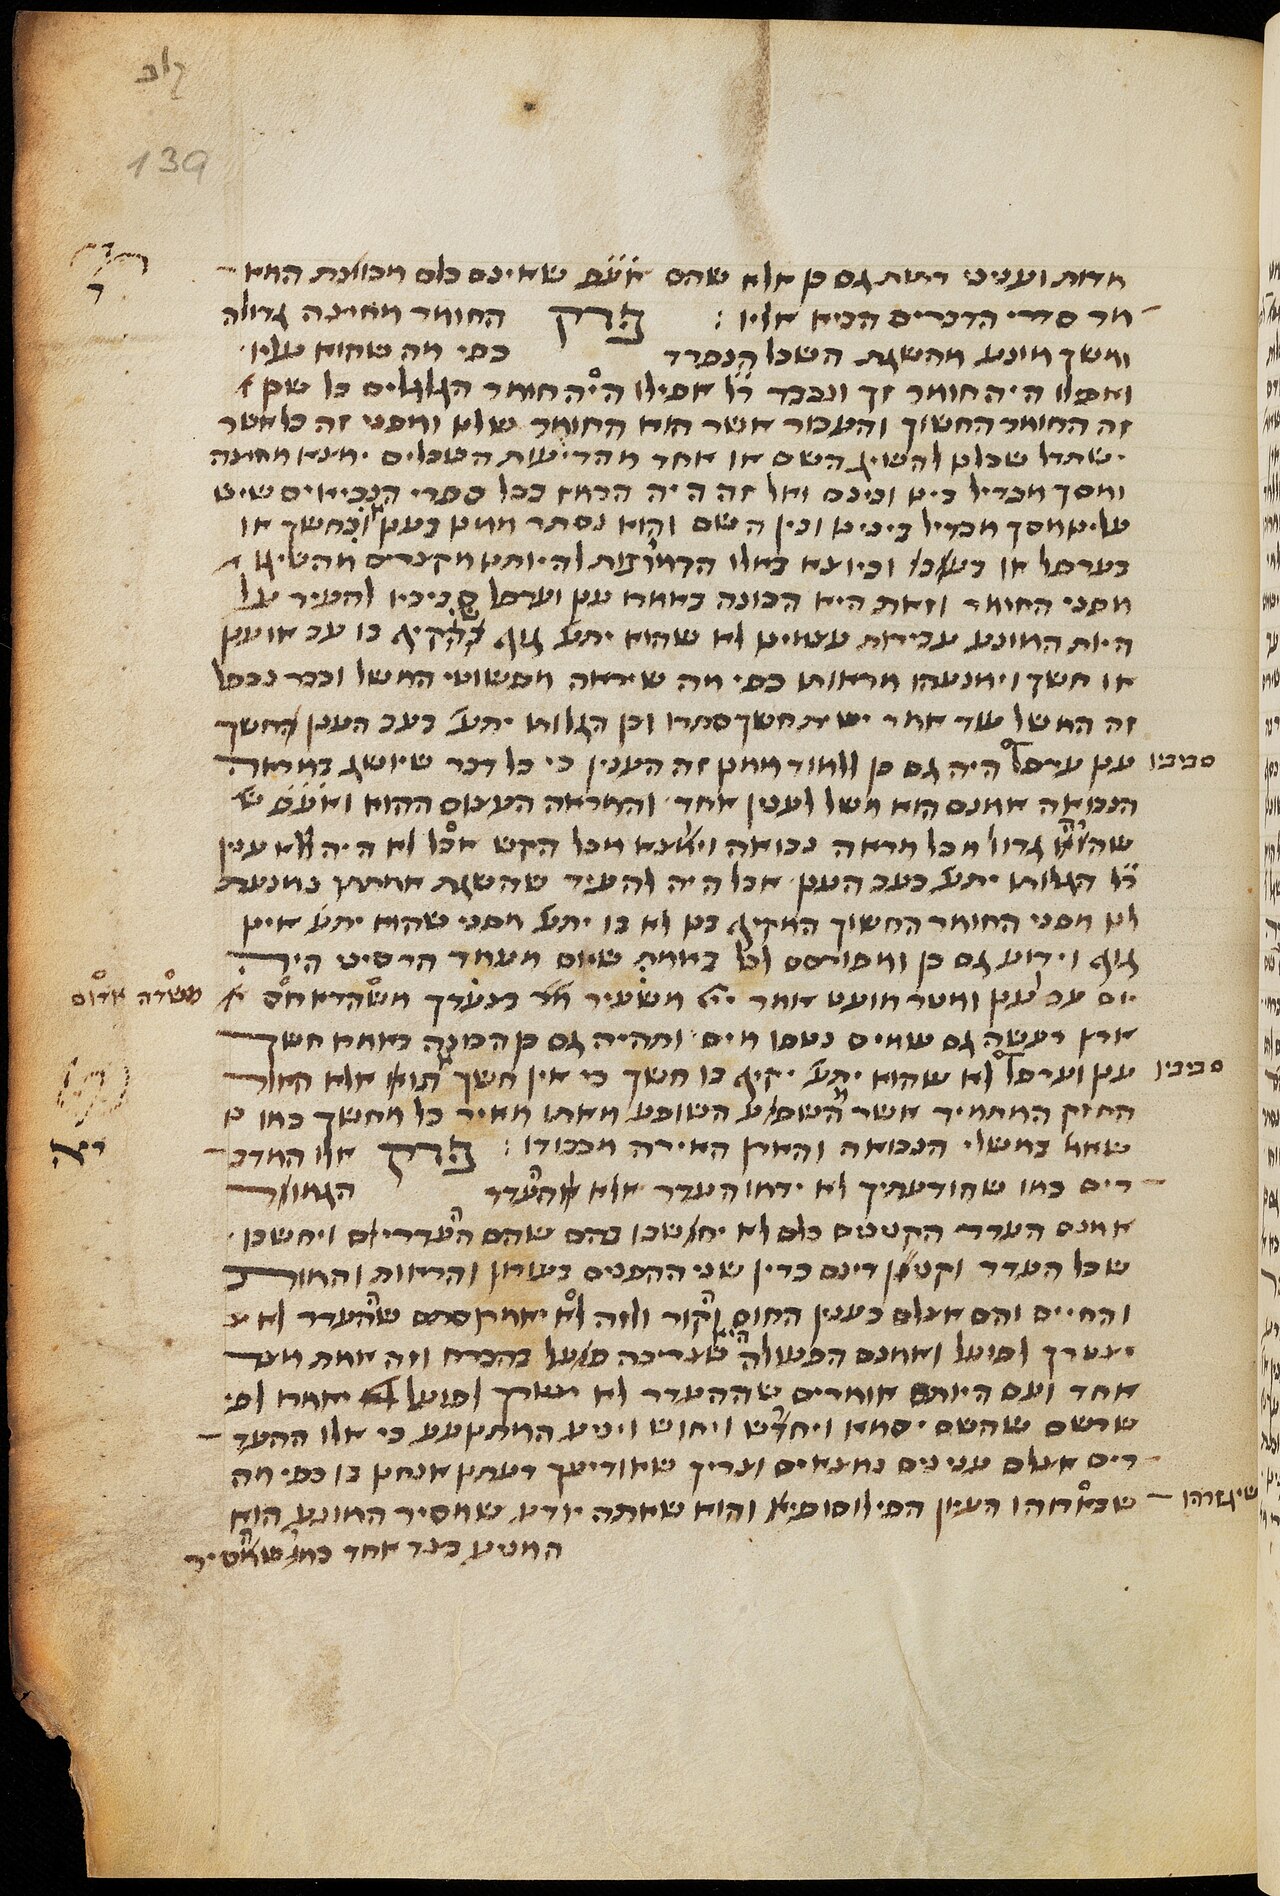 קלב
139
חדות ועניני דתת גם כן אלא שהם אע״פ שאינם כלם מכוונת המא
מר סדרי הדברים הביא אליו : פרק החומר מחיצה גדולה
ומסך מונע מהשגת השכל הנפרד כפי מה שהוא עליו
ואפילו היה חומר זך ונכבד ר״ל אפילו היה חומר הגלגלים כל שכן
זה החומר החשוך והעכור אשר הוא החומר שלנו ומפני זה כל אשר
ישתדל שכלנו להשיג השם או אחד מהדיעות השכלים ימצא מחיצה
ומסך מבדיל בינו ובינם ואל זה היה הרמז בכל ספרי הנביאים שיש
עלינו מסך מבדיל בינינו ובין השם והוא נסתר ממנו בענן או בחשך או
בערפל או בעב וכיוצא באלו הרמיזות להיותנו מקצרים מהשיגו
מפני החומר וזאת היא הכונה באמרו ענן וערפל סביביו להעיר על
היות המונע עכירות עצמינו לא שהוא יתע׳ גוף הקיף בו עב או ענן
או חשך וימנעהו מראותו כפי מה שיראה מפשוטי המשל וכבר נכפל
זה המשל עוד אמר ישת חשך סתרו וכן הגלותו יתע׳ בעב הענן החשך
ענן ערפל היה גם כן ללמוד ממנו זה הענין כי כל דבר שיושג במראה
סביביו
הנבואה אמנם הוא משל לענין אחד והמראה העצום ההוא ואע״פ ש
שהיה גדול מכל מראה נבואה ויוצא מכל הקש אבל לא היה ללא ענין
ר״ל הגלותו יתע׳ בעב הענן אבל היה להעיר שהשגת אמתתו נמנעת
לנו מפני החומר החשוך המקיף בנו לא בו יתע׳ מפני שהוא יתע׳ אינו
גוף וידוע גם כן ומפורסם באמת שיום מעמד הר סיני היה
יום עב ענן ומטר מועט אמר יי׳ בצאתך משעיר בצעדך משדה אדום
משדה אדום
ארץ רעשה גם שמים נטפו מים ותהיה גם כן הכונה באמרו חשך
ענן וערפל לא שהוא יתע׳ יקיף בו חשך כי אין חשך אתו אלא האור
סביביו
החזק המתמיד אשר השופע מאתו מאיר כל מחשך כמו
שאמר במשלי הנבואה והארץ האירה מכבודו : פרק אלו המדב
יא
רים כמו שהודעתיך לא ידמו העדר אלא ההעדר הגמור
אמנם העדר הקנינים כלם לא יחשבו בהם שהם העדרים ויחשבו
שכל העדר וקנין דינם כדין שני ההפכים כעורון והראות והמות
והחיים והם אצלם כענין החום והקור ולזה לא יאמרו סתם שההעדר לא
יצטרך לפועל ואמנם הפעולה היא שצריכה פועל בהכרח וזה אמת מצד
אחד ועם היותם אומרים שההעדר לא יצטרך לפועל יאמרו לפי
שרשם שהשם יסמא ויחרש ויניע המתנועע כי אלו ההעד
רים אצלם ענינים נמצאים וצריך שאודיעך דעתנו אנחנו בו כפי מה
שיגזרהו העיון הפילוסופיא והוא שאתה יודע שמסיר המונע הוא
שיגזרהו
המניע בצד אחד כמו שמסיר